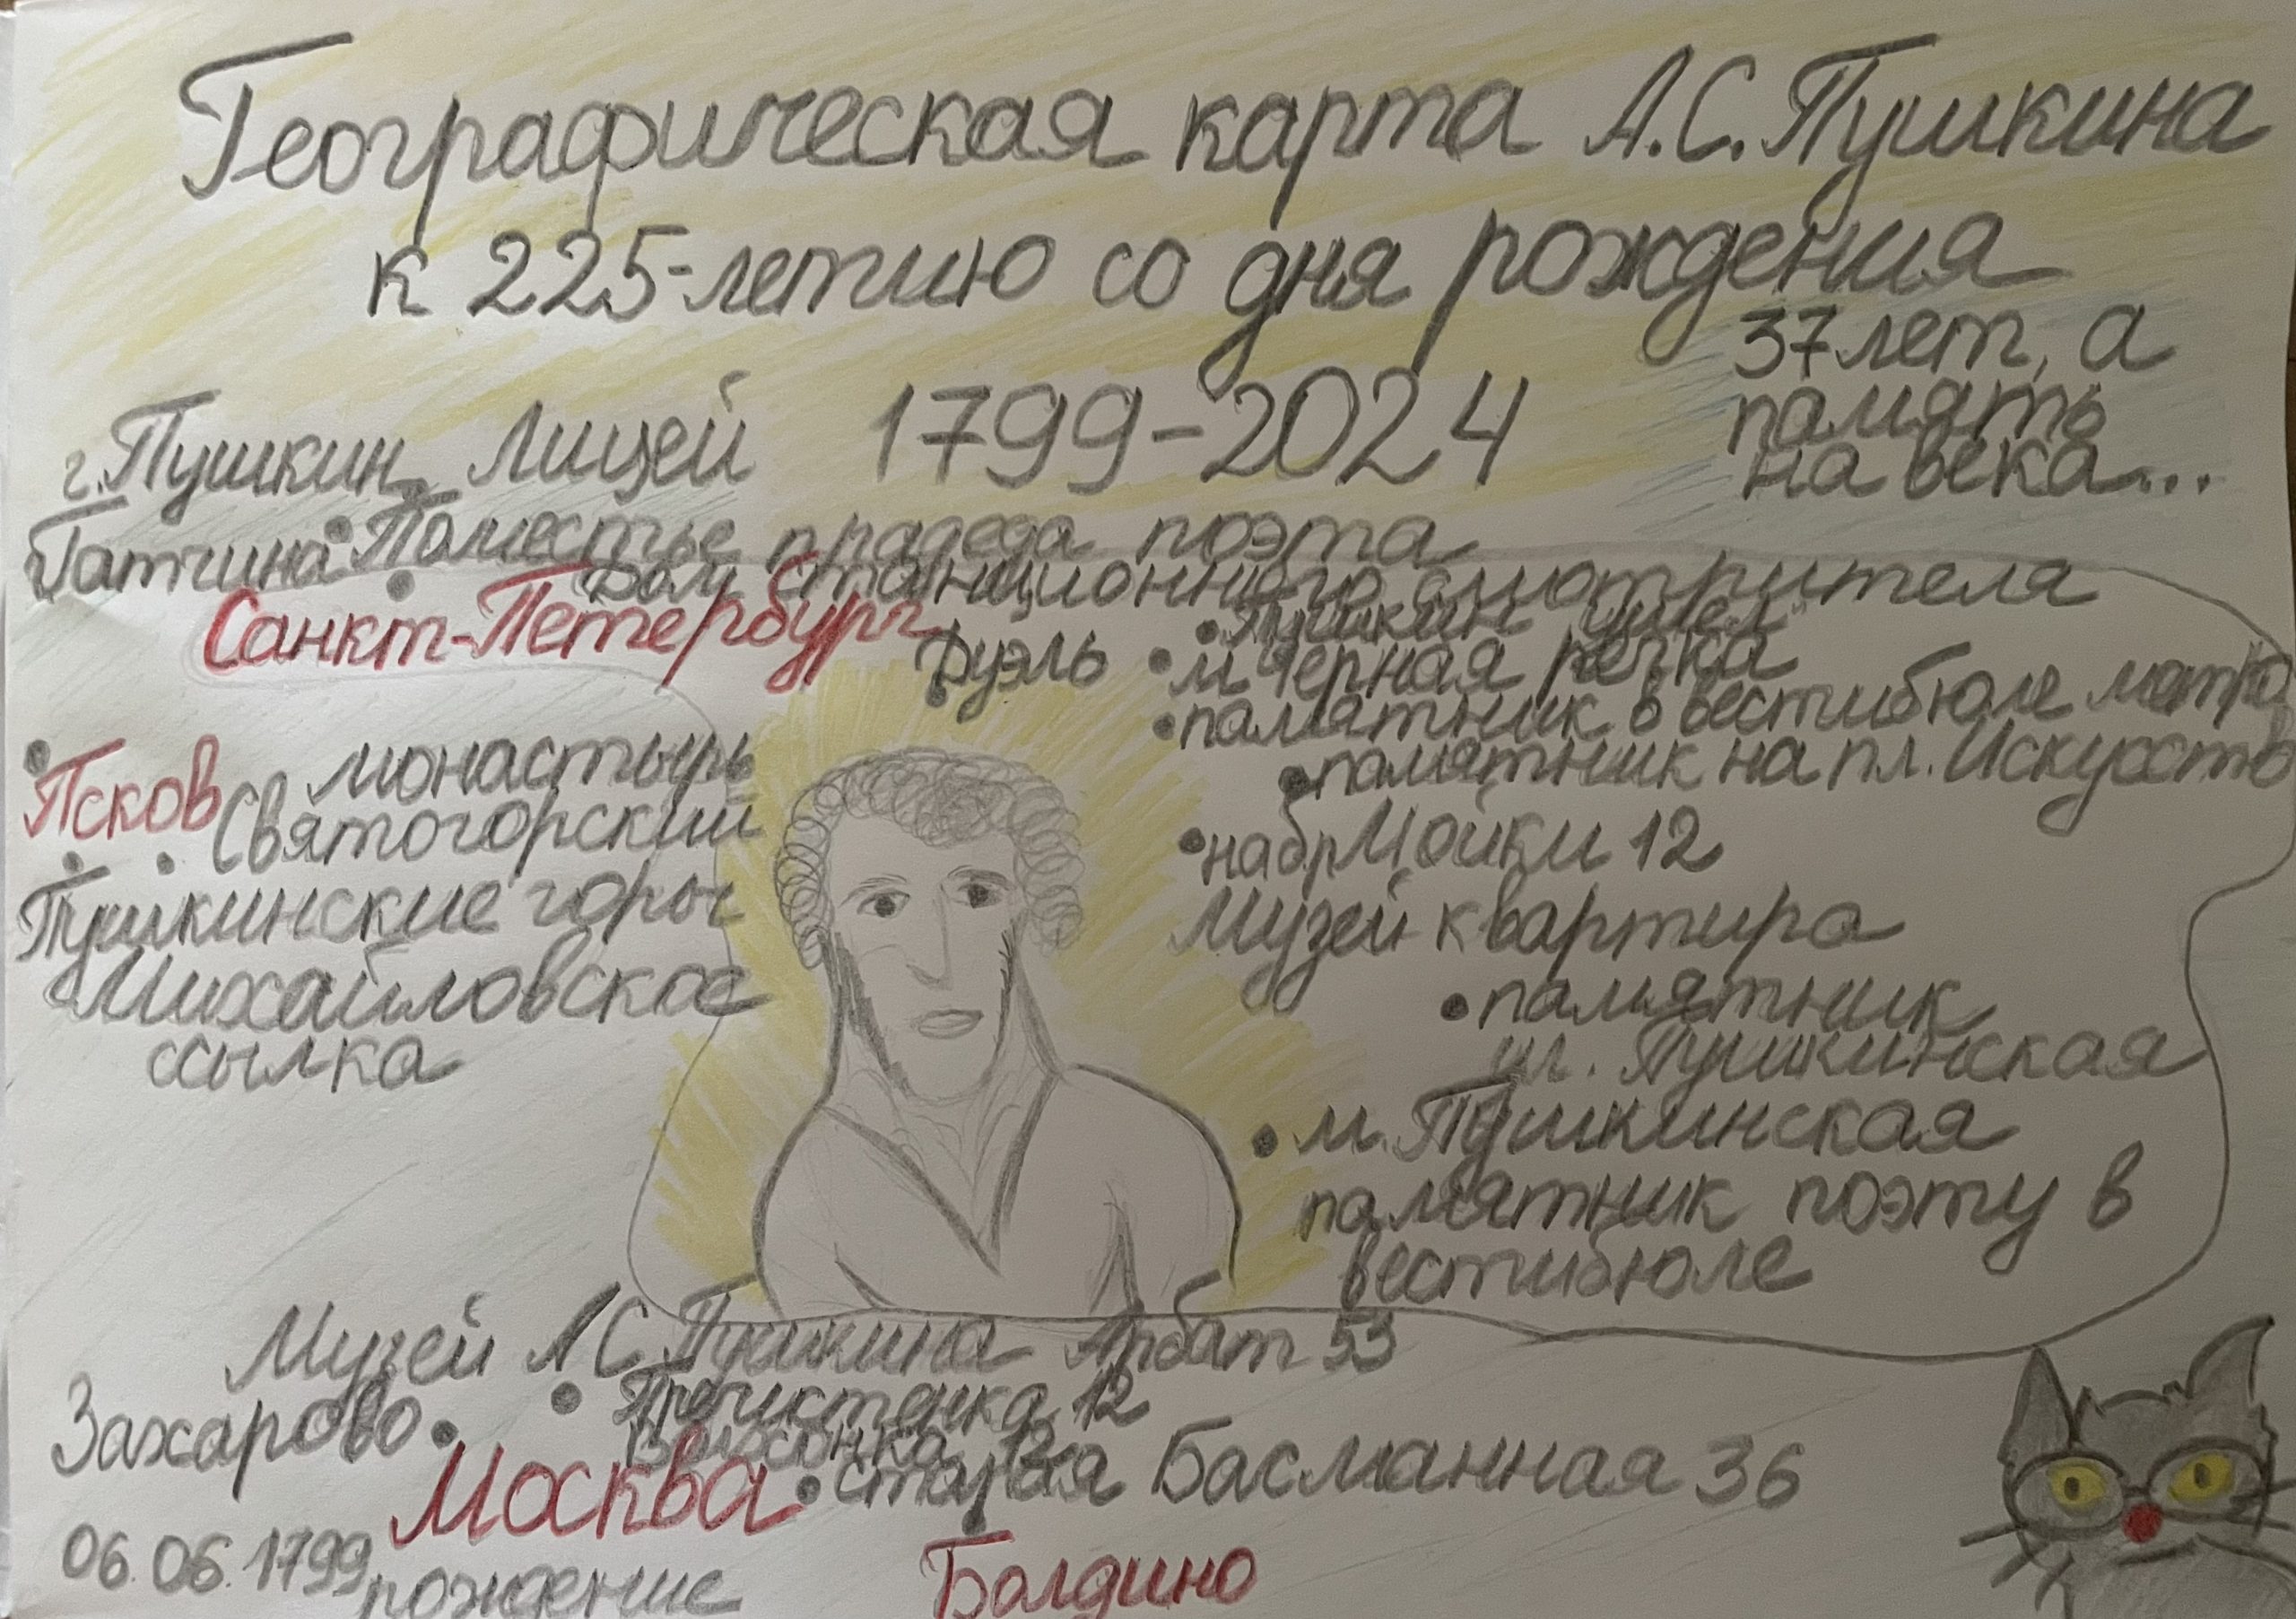 Географическая карта А.С.Пушкина
к 225-летию со дня рождения
37 лет, а
память
на века...
1799-2024
г.Пушкин Лицей
Гатчина • Поместье прадеда поэта
• Дом станционного смотрителя
Санкт-Петербург
Дуэль
• "Пушкин ушёл"
• м Чёрная речка
• памятник в вестибюле метро
• памятник на пл. Искусств
• наб р Мойки 12
Музей квартира
• памятник
ул. Пушкинская
• м. Пушкинская
памятник поэту в
вестибюле
• Псков
монастырь
• Святогорский
• Пушкинские горы
Михайловское
ссылка
Музей А С Пушкина Арбат 53
• Пречистенка 12
Волхонка 12
Захарово •
Москва • старая Басманная 36
06.06.1799
рождение
• Болдино